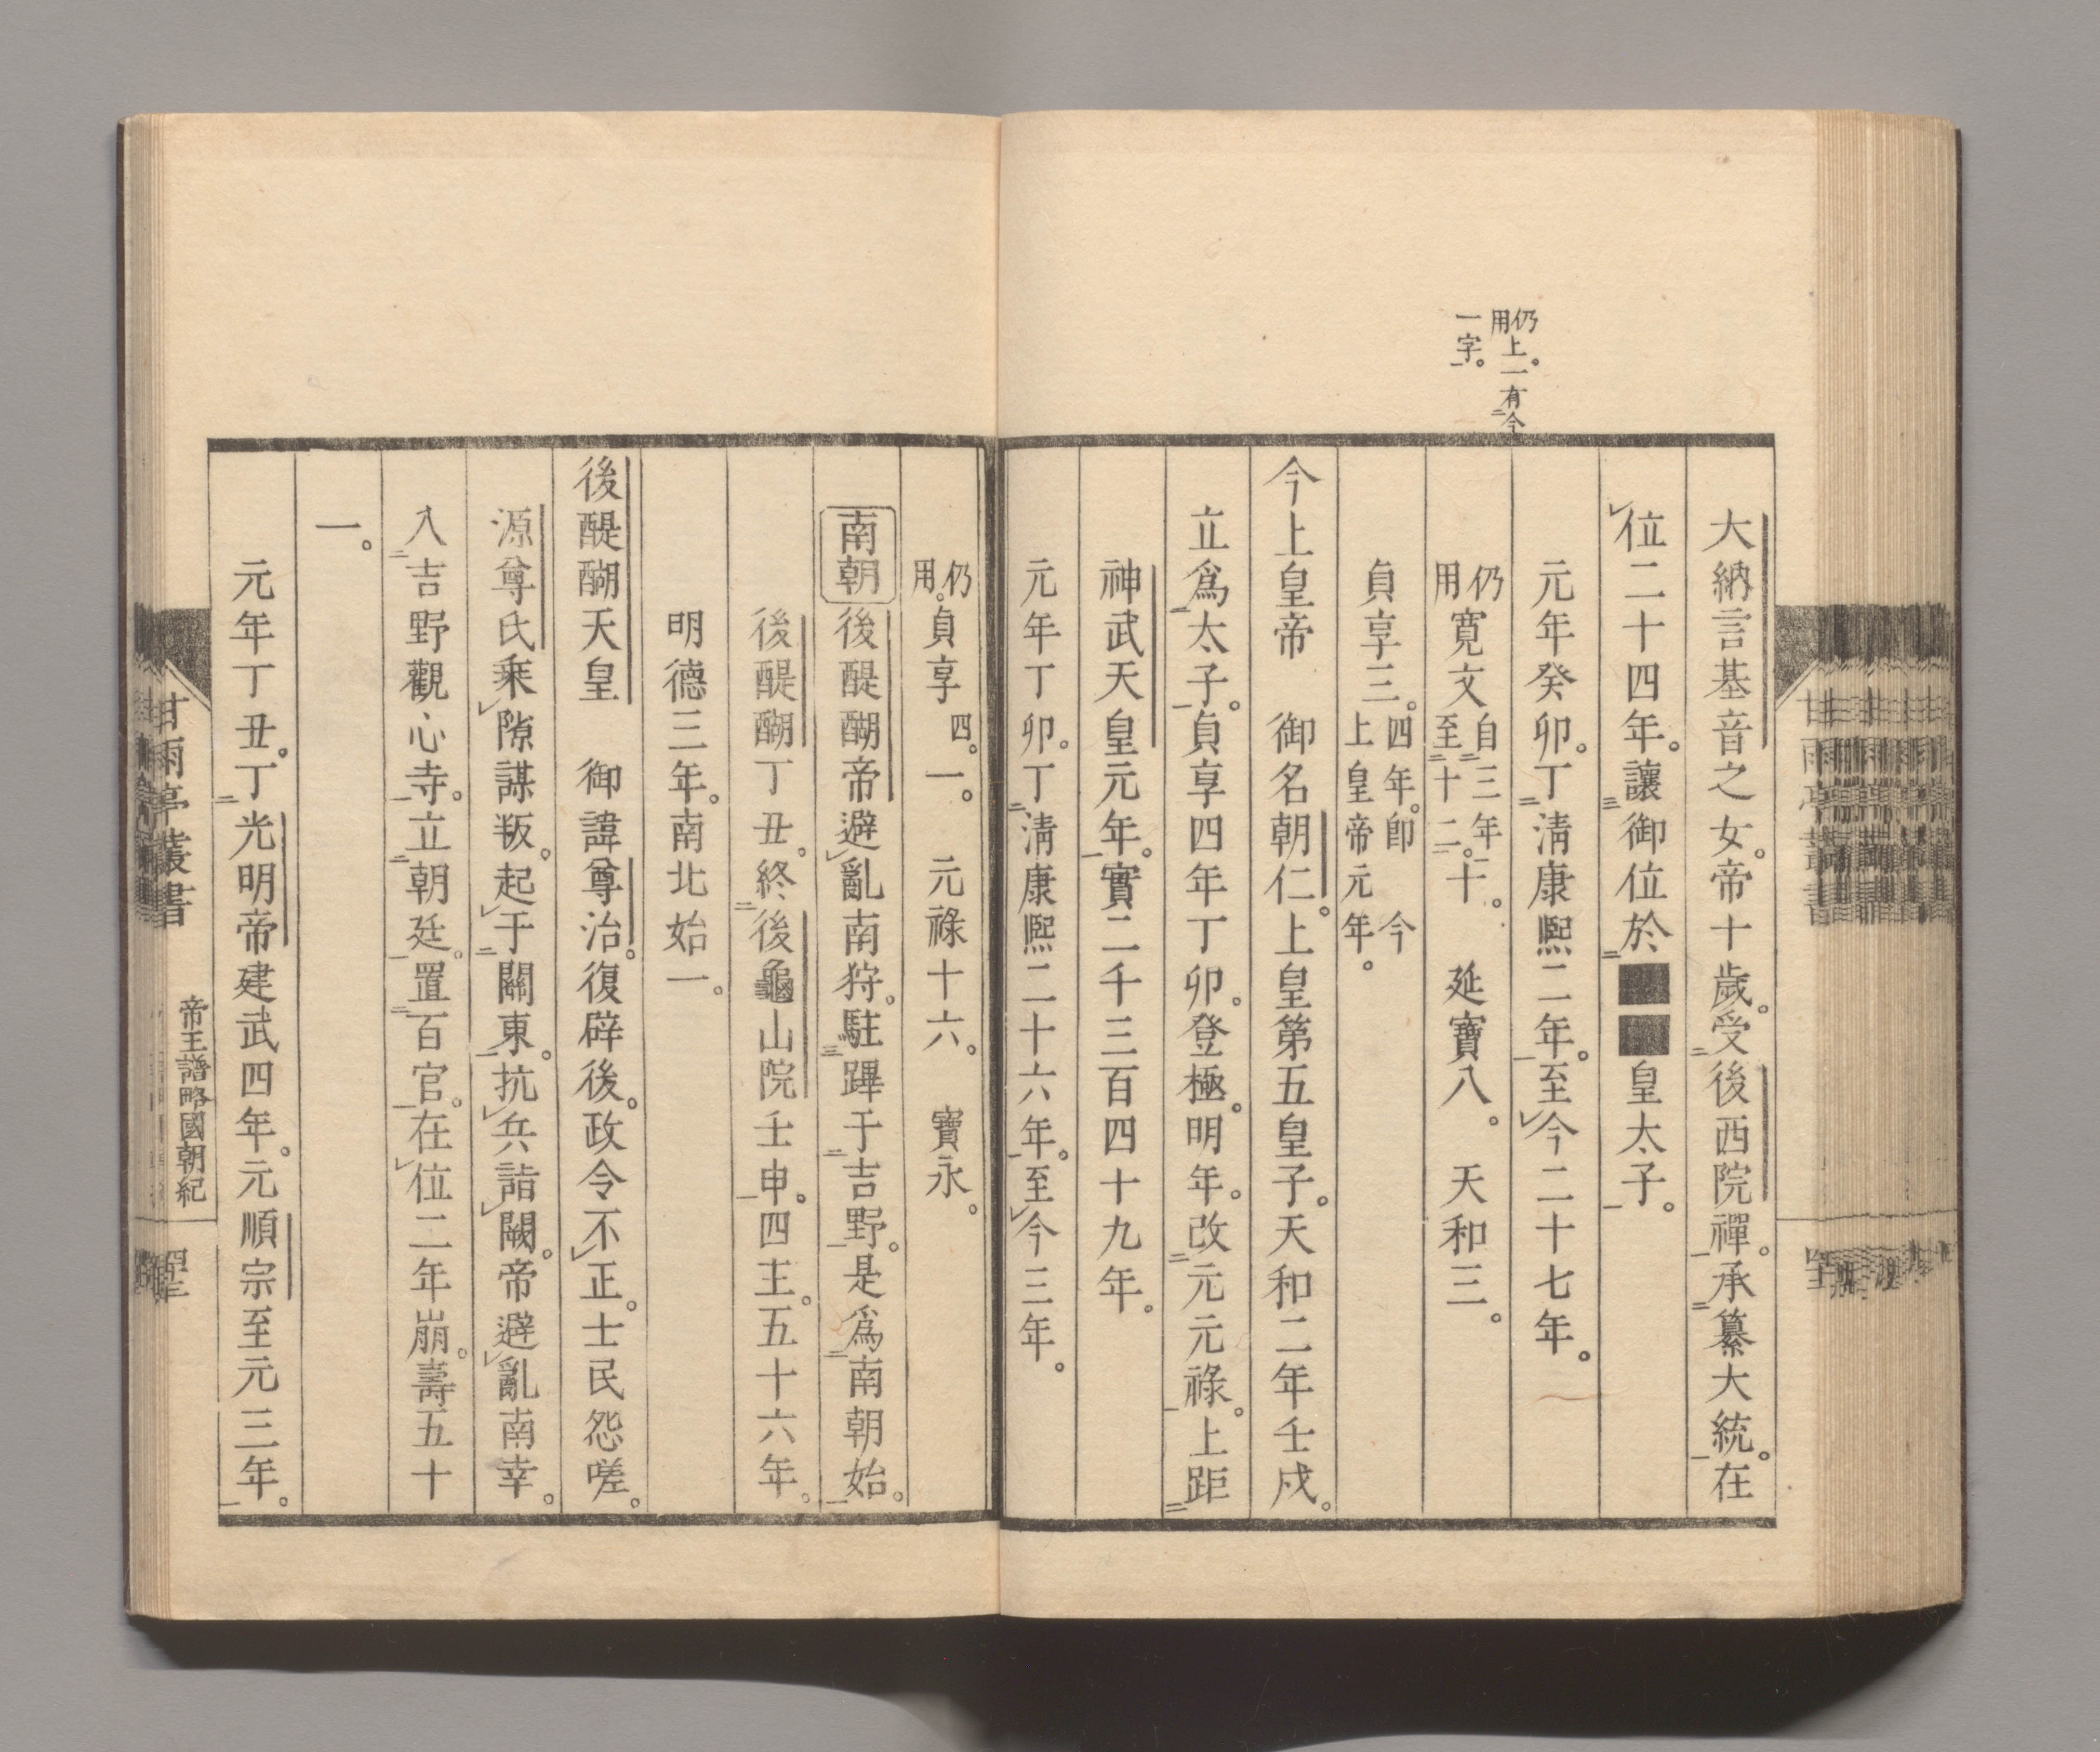 仍上。一有今
用
一字。
大納言基音之女。帝十歲。受後西院禪。承纂大統。在
位二十四年。讓御位於■■皇太子。
元年癸卯。丁淸康熙二年。至今二十七年。
仍用寬文自三年至十二。十。延寶八。天和三。
貞享三。四年。卽今上皇帝元年。
今上皇帝 御名朝仁。上皇第五皇子。天和二年壬戌。
立爲太子。貞享四年丁卯。登極。明年。改元元祿。上距
神武天皇元年。實二千三百四十九年。
元年丁卯。丁淸康熙二十六年。至今三年。
仍用。貞享四。一。元祿十六。寶永。
南朝 後醍醐帝避亂南狩。駐蹕于吉野。是爲南朝始。
後醍醐丁丑。終後龜山院壬申。四主。五十六年。
明德三年。南北始一。
後醍醐天皇 御諱尊治。復辟後。政令不正。士民怨嗟。
源尊氏乘隙謀叛。起于關東。抗兵詣闕。帝避亂南幸。
入吉野觀心寺。立朝廷。置百官。在位二年崩。壽五十
一。
元年丁丑。丁光明帝建武四年。元順宗至元三年。
甘雨亭叢書
帝王譜略國朝紀